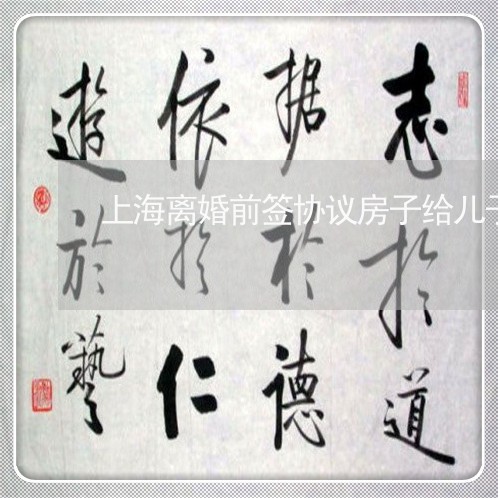 志於道
据於德
依於仁
遊於藝
上海离婚前签协议房子给儿子